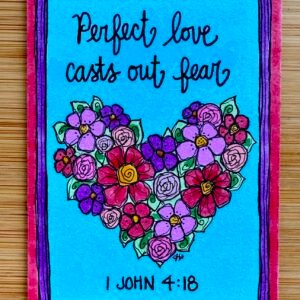 Perfect love
casts out fear
1 JOHN 4:18